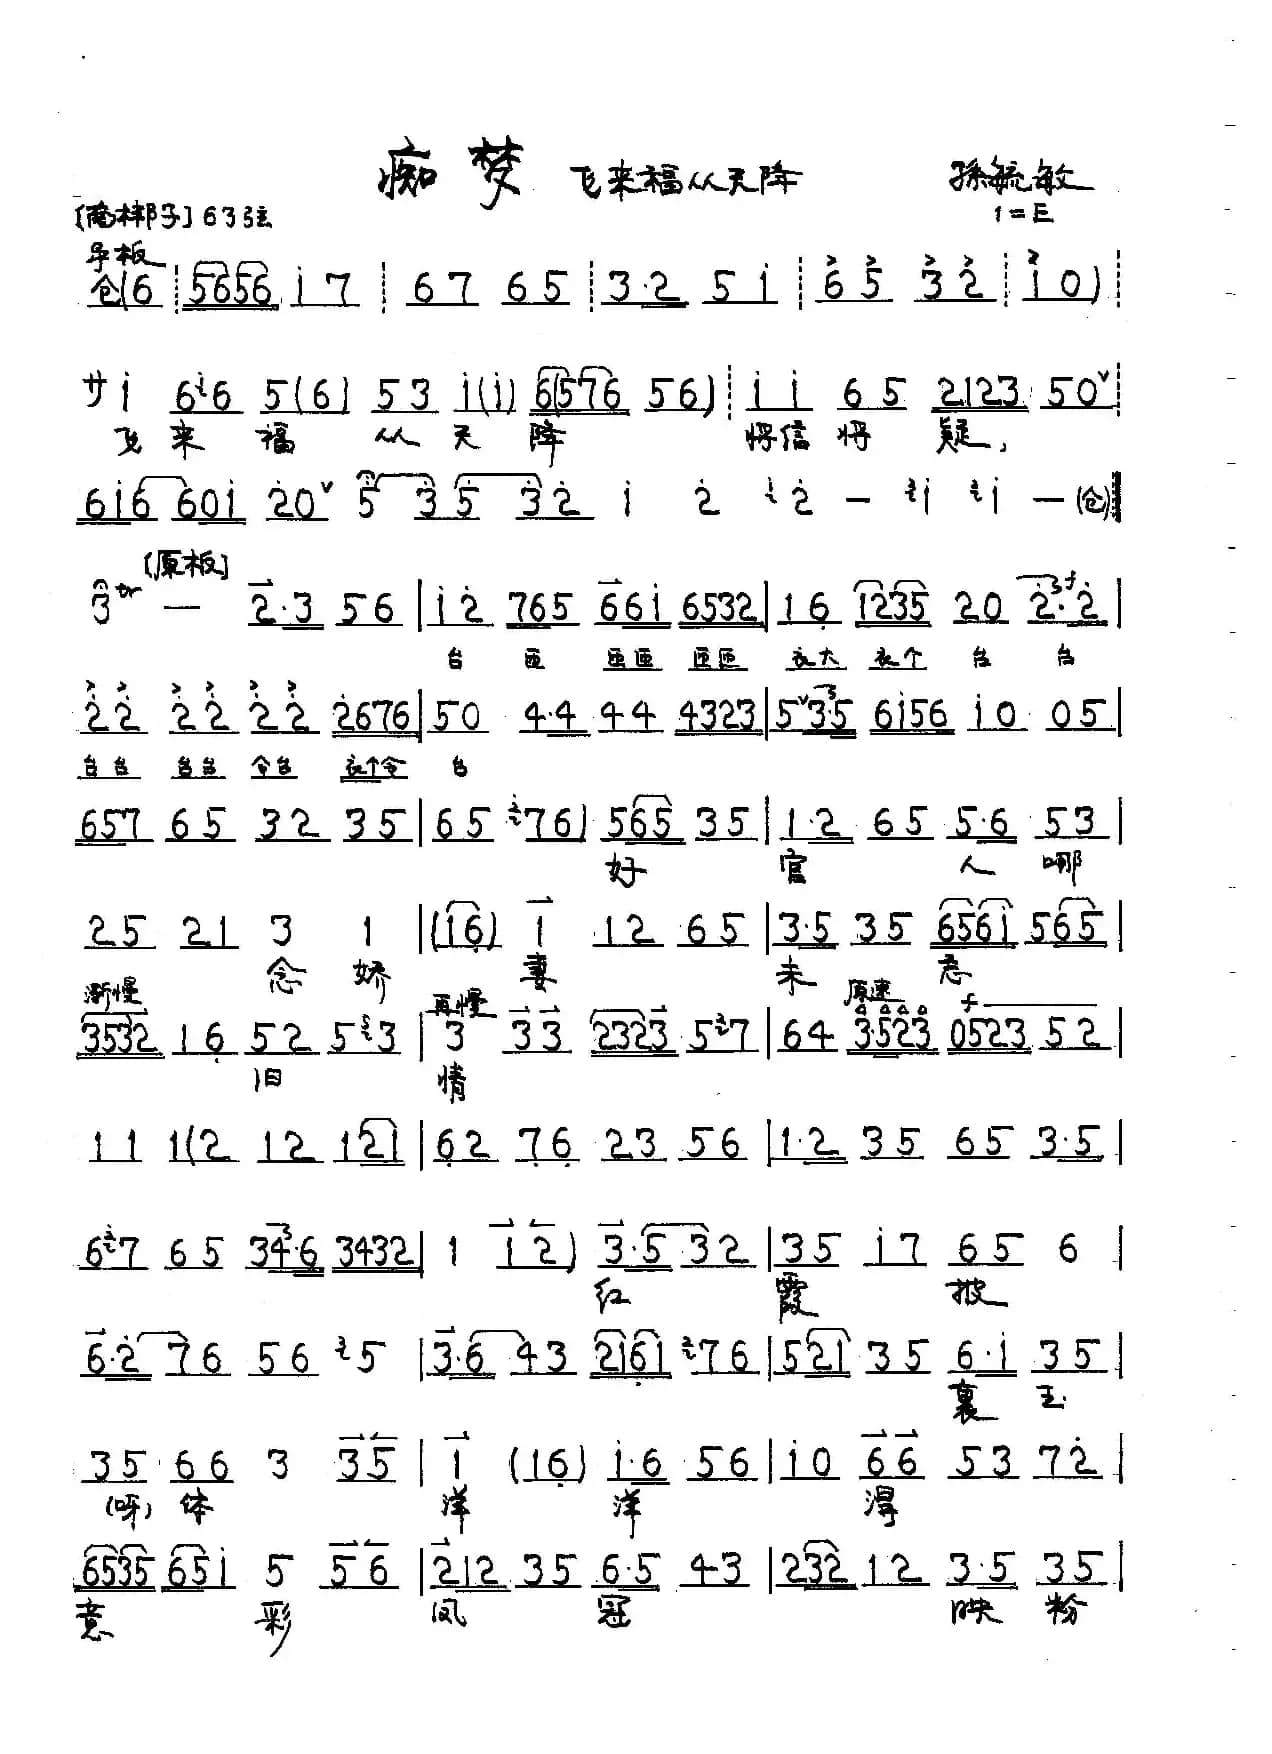 痴梦 飞来福从天降 孫毓敏
[南梆子] 63弦 1=E
导板
仓(6 5656 i7 67 65 3·2 5i 65 32 i0)
サi 6i6 5(6) 53 i(i) 6(576 56) ii 65 2123 50
飞来福从天降 将信将疑,
6i6 60i 20 5 35 32 i 2 i2 — 2i 2i — (仓)
[原板]
3tr — 2·3 56 i2 765 66i 6532 16 1235 20 2·2
台 匝 匝匝 匝匝 衣大 衣个 台 台
22 22 22 2676 50 4·4 44 4323 535 6i56 i0 05
台台 台台 令台 衣个令 台
657 65 32 35 65 276) 565 35 1·2 65 5·6 53
好 官 人 哪
25 21 3 1 (16) 1 12 65 3·5 35 656i 565
念 娇 妻 未 忘
渐慢 再慢 原速 f
3532 16 52 53 3 33 2323 57 64 3·523 0523 52
旧 情
11 1(2 12 121 62 76 23 56 1·2 35 65 3·5
67 65 34·6 3432 1 12) 3·5 32 35 i7 65 6
红 霞 披
6·2 76 56 5 3·6 43 2161 76 521 35 6·i 35
裹 玉
35 66 3 35 1 (16) i·6 56 i0 66 53 72
(呀) 体 洋 洋 得
6535 65i 5 56 212 35 6·5 43 232 12 3·5 35
意 彩 凤 冠 映 粉